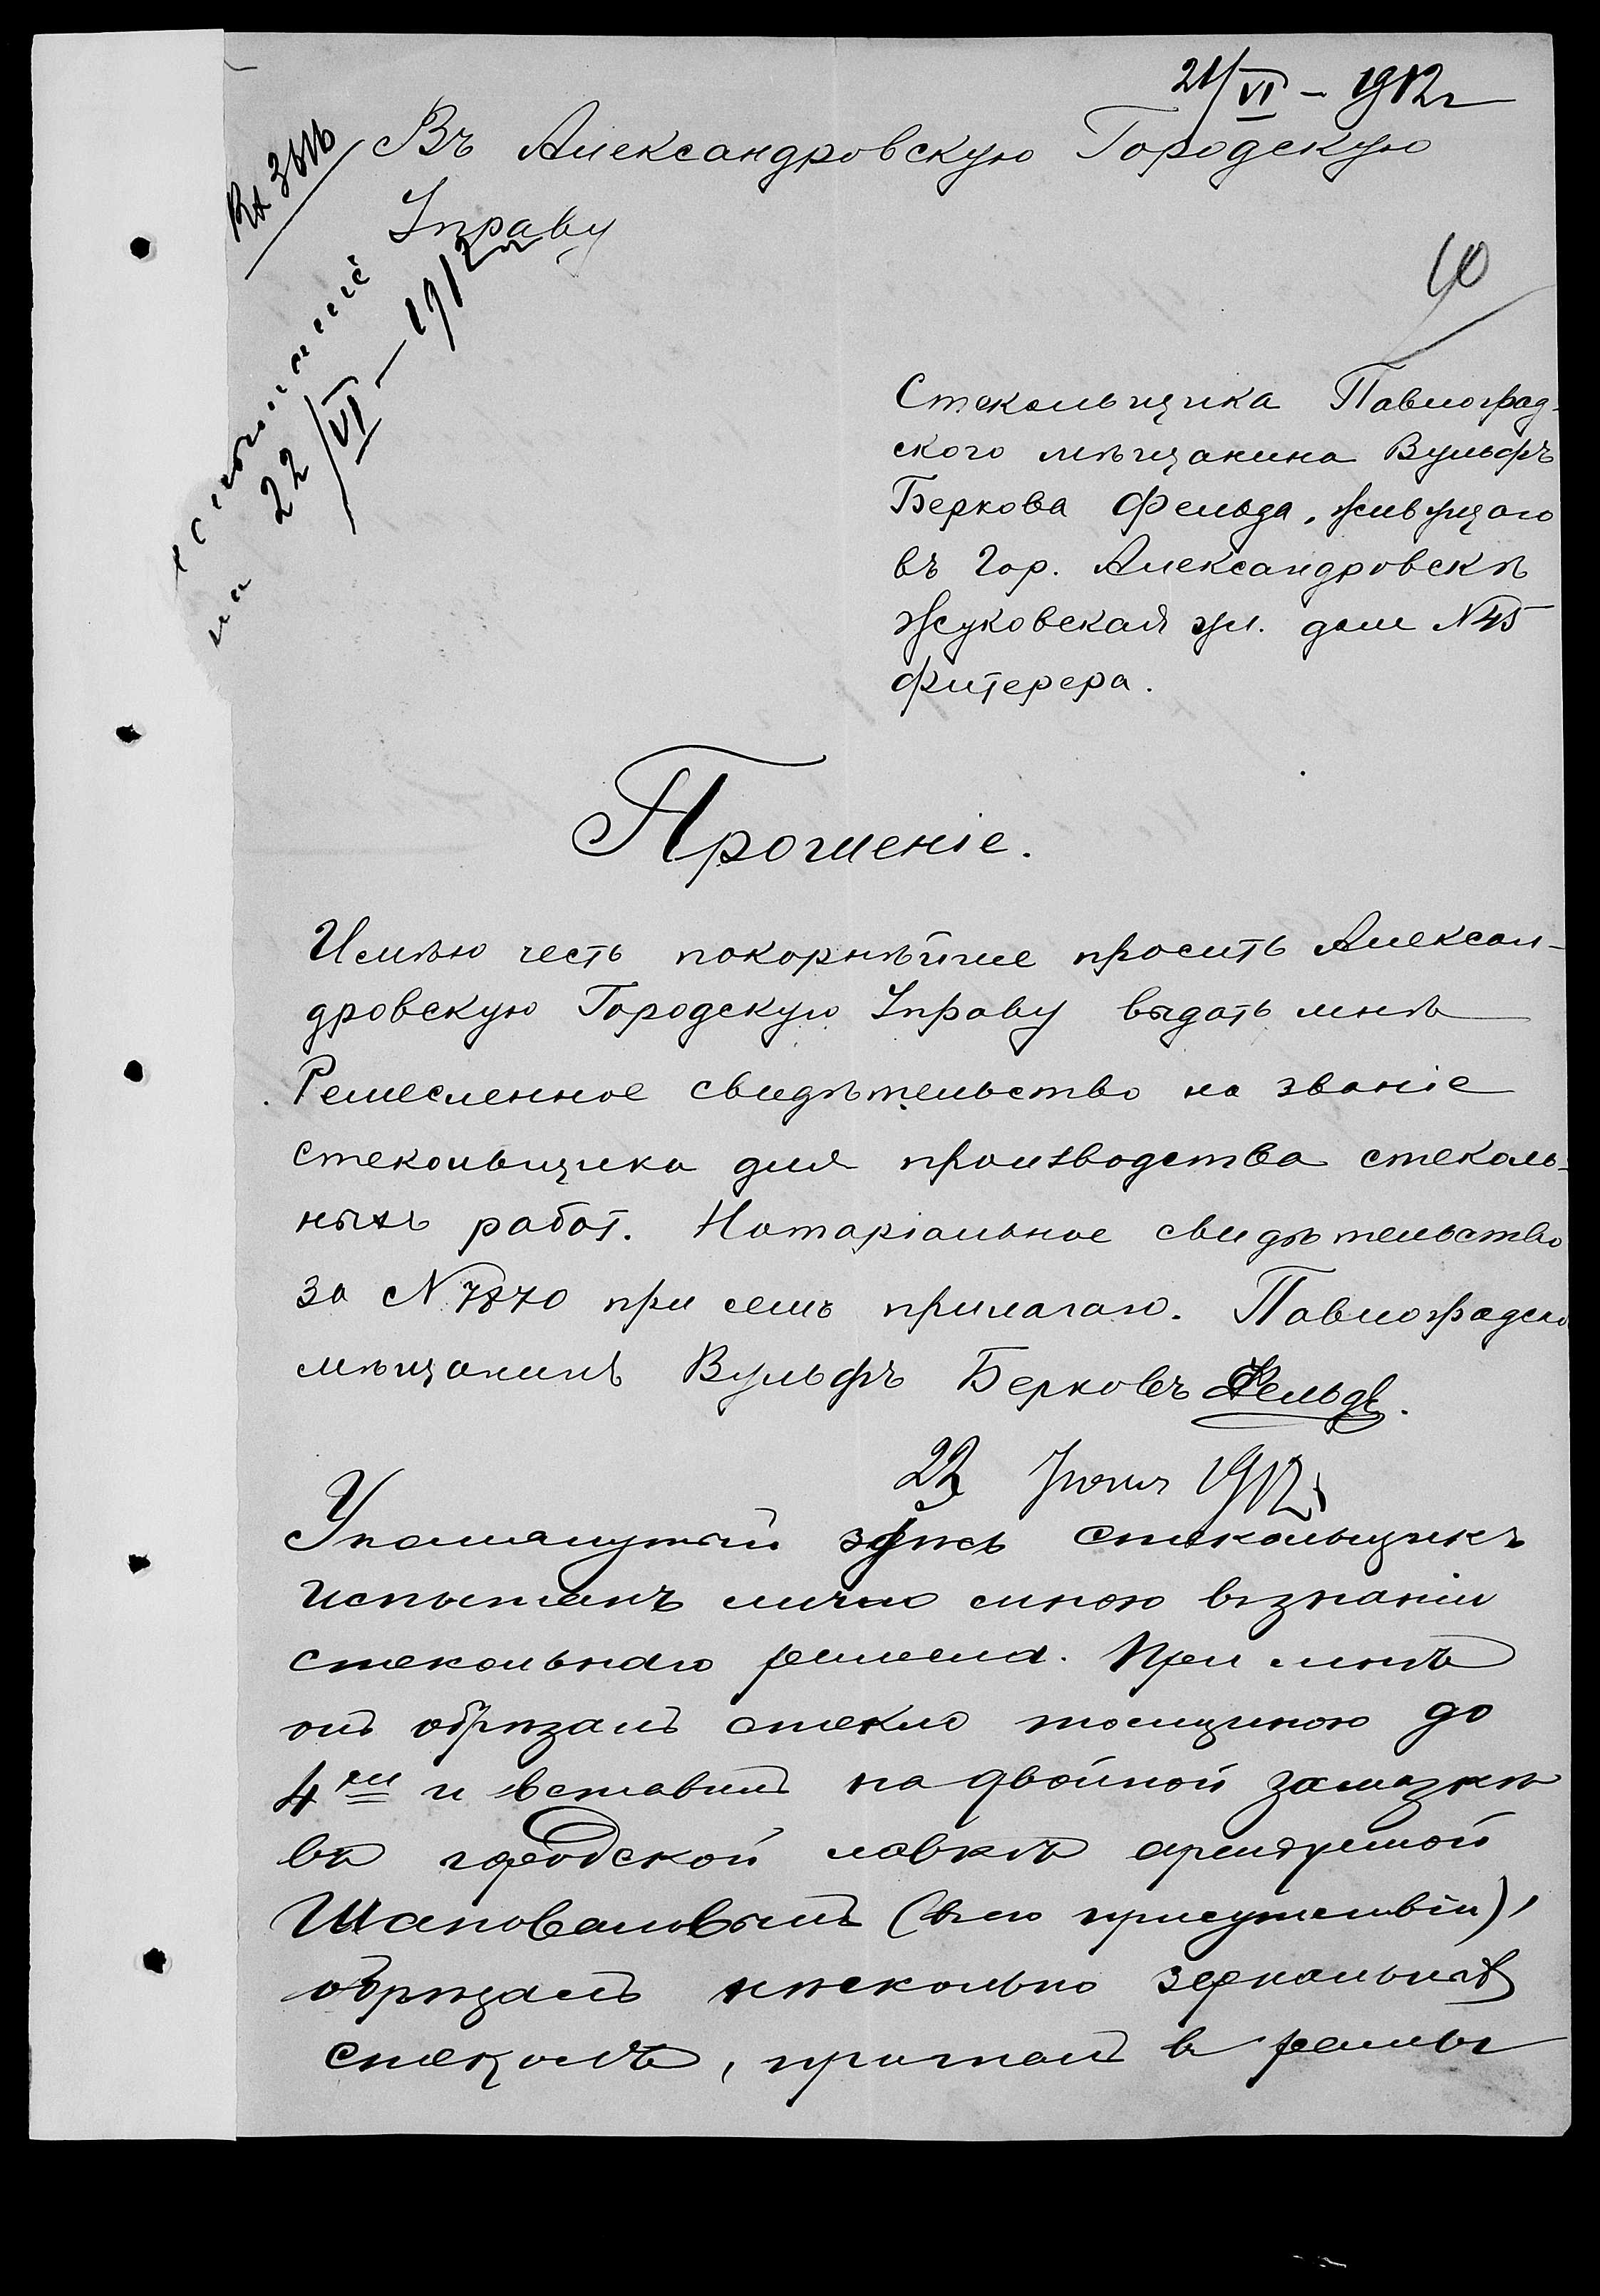 21/VI – 1912 г
Въ Александровскую Городскую
Управу
22/VI – 1912 г
на
Стекольщика Павлоград-
ского мѣщанина Вульфъ
Беркова Фельда, живущаго
въ Гор. Александровскѣ
Жуковская ул. дом N 45
Фитерера.
Прошеніе.
Имѣю честь покорнѣйше просить Алексан-
дровскую Городскую Управу выдать мнѣ
Ремесленное свидѣтельство на званіе
стекольщика для производства стеколь-
ныхъ работ. Нотаріальное свидѣтельство
за N 7870 при семъ прилагаю. Павлоградск
мѣщанинъ Вульфъ Берковъ Фельдъ.
22 Іюня 1912
Упомянутый здѣсь стекольщикъ
испытанъ лично мною въ знаніи
стекольнаго ремесла. При мнѣ
онъ обрѣзалъ стекло толщиною до
4 мм и вставилъ на двойной замазкѣ
въ городской лавкѣ арендуемой
Шаповаловымъ (въ его присутствіи),
обрѣзалъ нѣсколько зеркальныхъ
стеколъ, пригналъ въ рамы